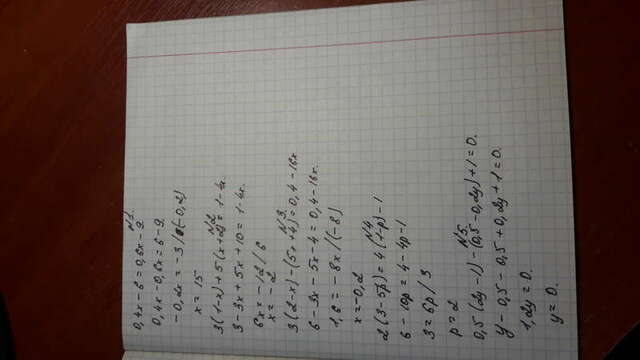 N1.
0,4x-6=0,6x-9
0,4x-0,6x=6-9
-0,2x=-3/(-0,2)
x=15
N2
3(1-x)+5(x+2)=1-4x.
3-3x+5x+10=1-4x.
6x=-12/6
x=-2
N3.
3(2-x)-(5x+4)=0,4-16x
6-3x-5x-4=0,4-16x.
1,6=-8x/(-8)
x=-0,2
N4
2(3-5p)=4(1-p)-1
6-10p=4-4p-1
3=6p/3
p=2
N5.
0,5(2y-1)-(0,5-0,2y)+1=0.
y-0,5-0,5+0,2y+1=0.
1,2y=0.
y=0.